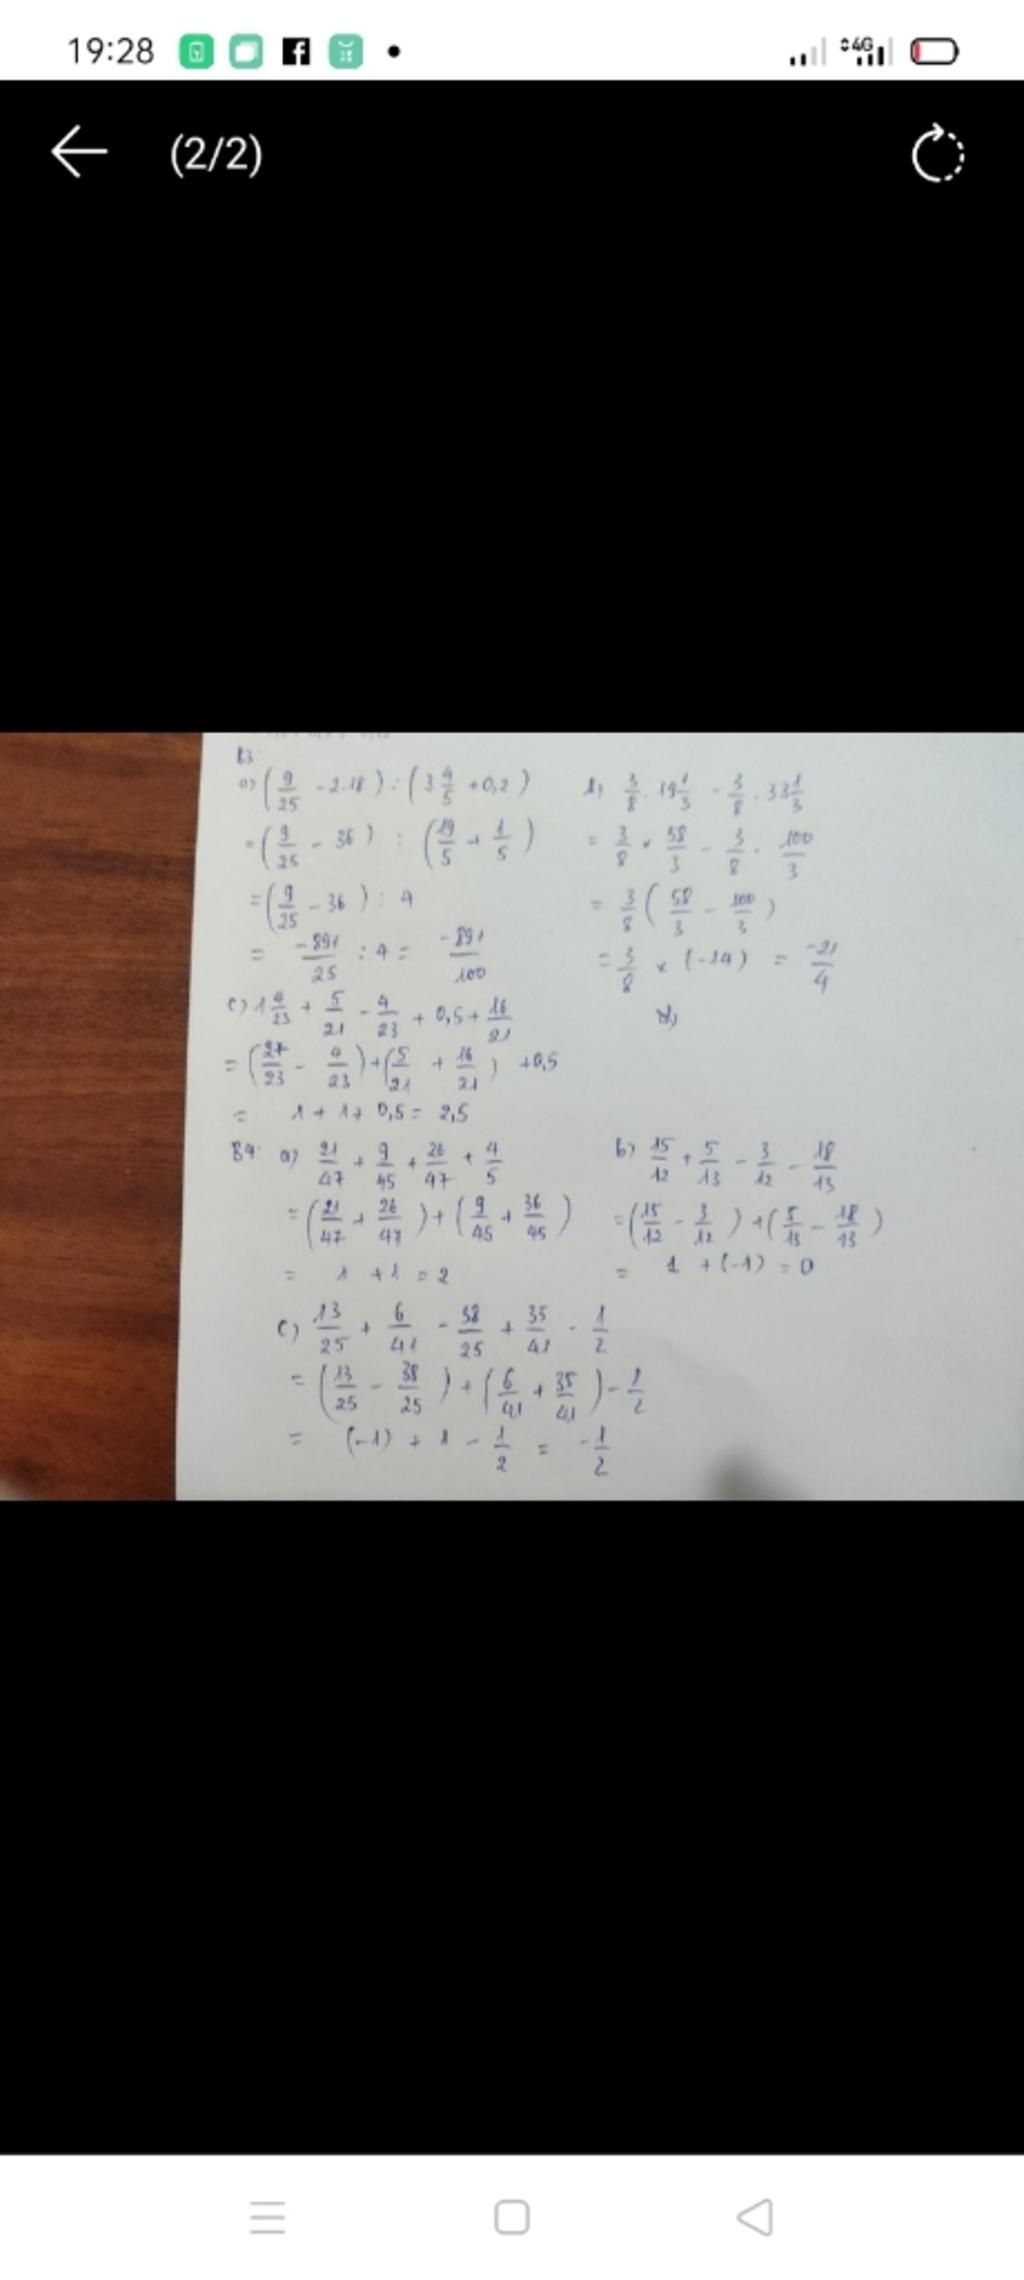 19:28
4G
(2/2)
B3:
a) (9/25 - 2.18) : (3 4/5 + 0,2)
= (9/25 - 36) : (19/5 + 1/5)
= (9/25 - 36) : 4
= -891/25 : 4 = -891/100
b) 3/8 . 19 1/3 - 3/8 . 33 1/3
= 3/8 × 58/3 - 3/8 . 100/3
= 3/8 (58/3 - 100/3)
= 3/8 × (-14) = -21/4
c) 1 4/23 + 5/21 - 4/23 + 0,5 + 16/21
= (27/23 - 4/23) + (5/21 + 16/21) + 0,5
= 1 + 1 + 0,5 = 2,5
B4: a) 21/47 + 9/45 + 26/47 + 4/5
= (21/47 + 26/47) + (9/45 + 36/45)
= 1 + 1 = 2
b) 15/12 + 5/13 - 3/12 - 18/13
= (15/12 - 3/12) + (5/13 - 18/13)
= 1 + (-1) = 0
c) 13/25 + 6/41 - 38/25 + 35/41 - 1/2
= (13/25 - 38/25) + (6/41 + 35/41) - 1/2
= (-1) + 1 - 1/2 = -1/2